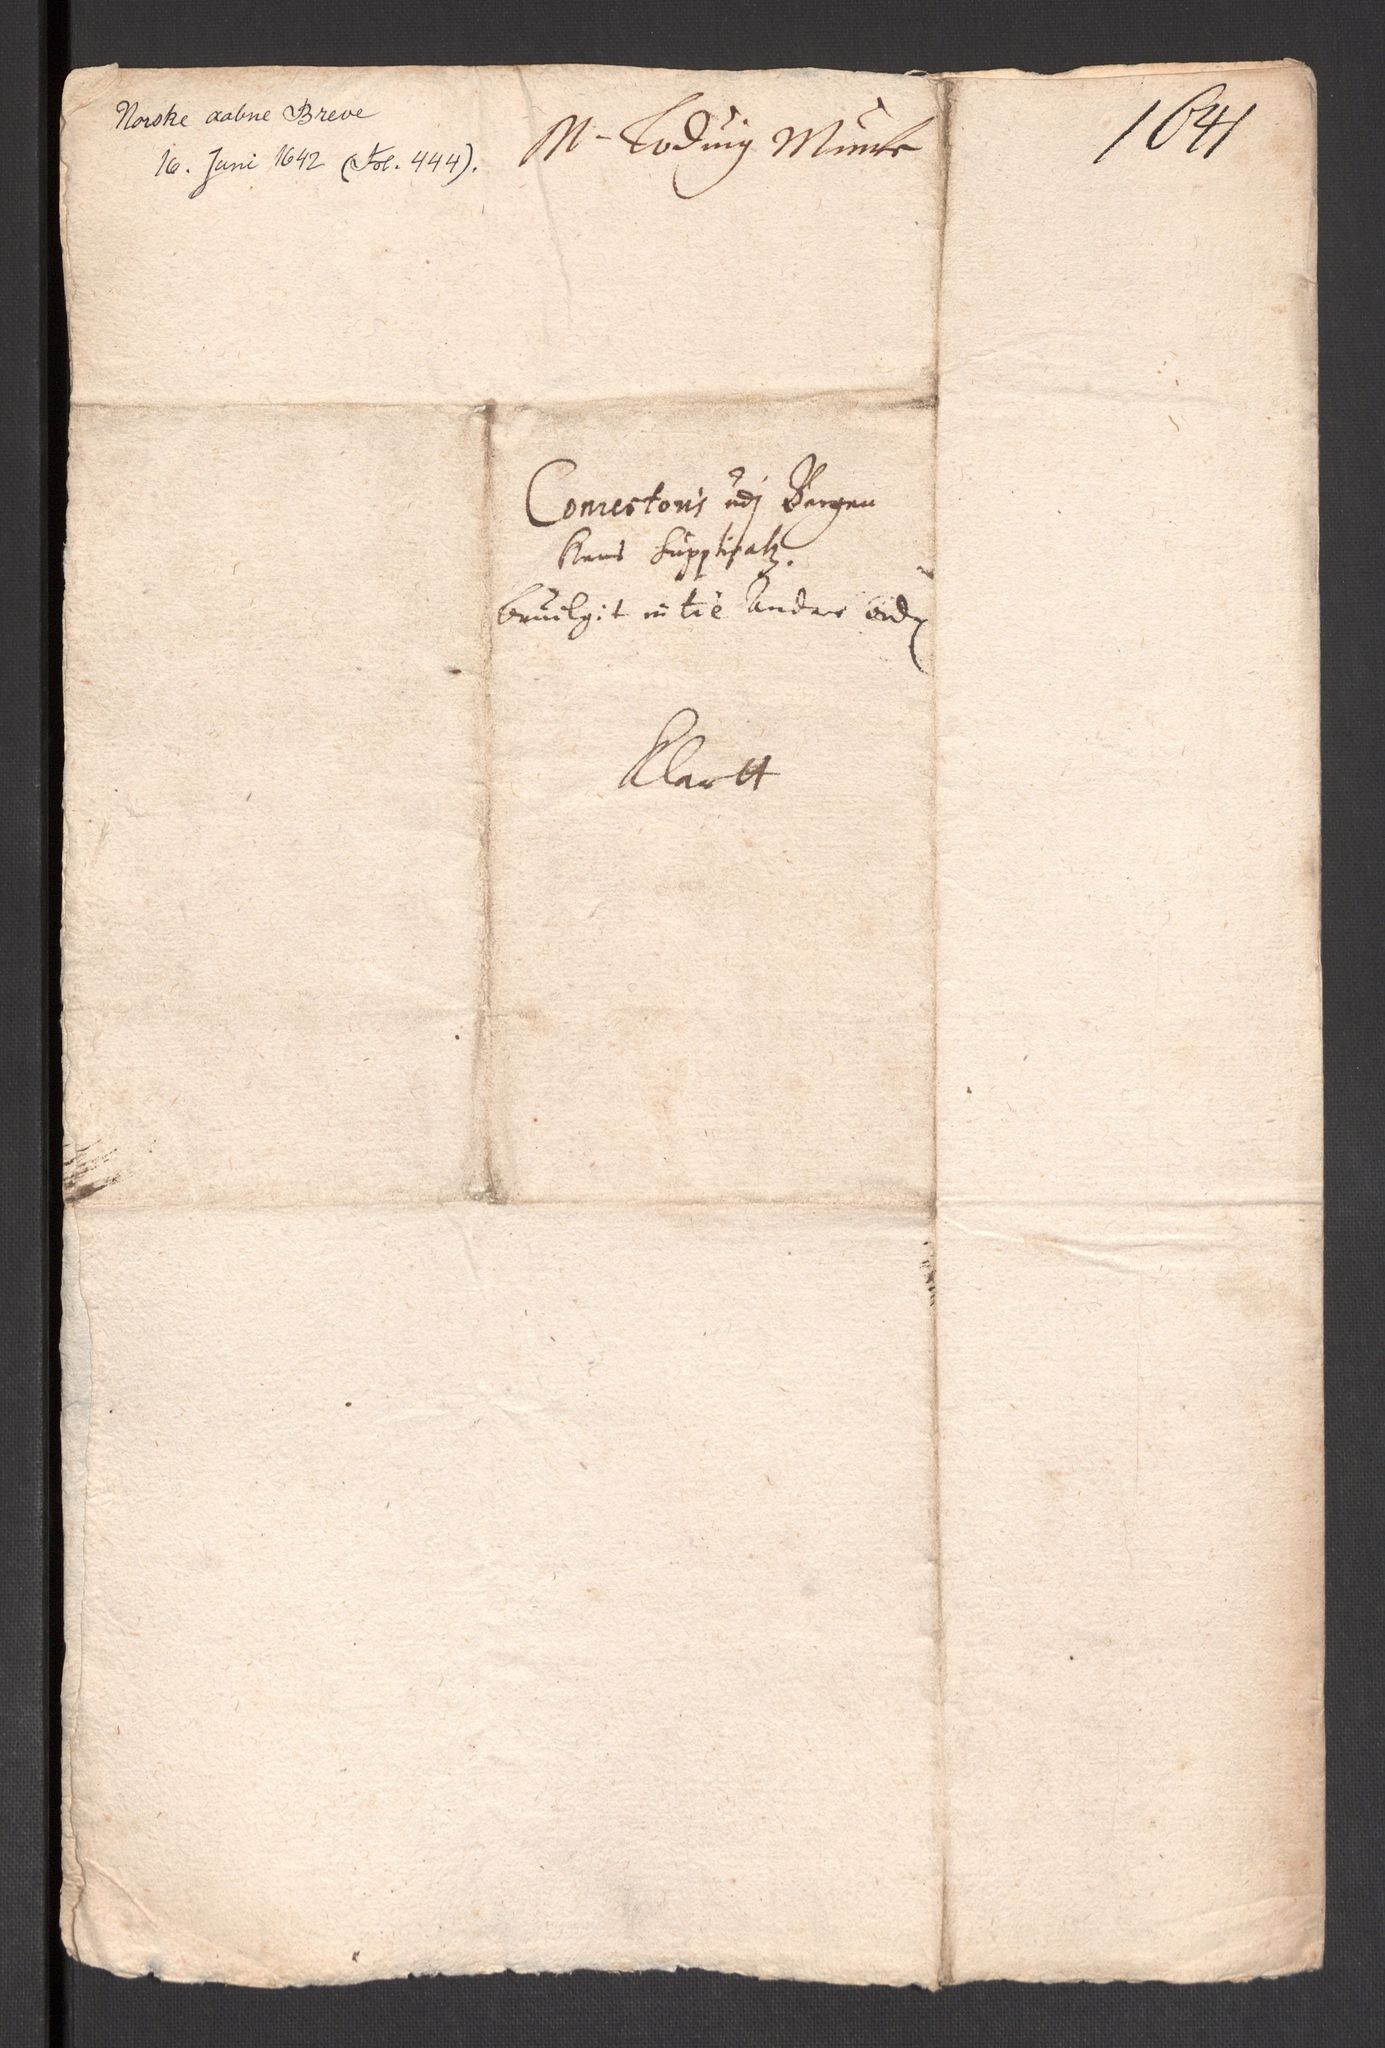 Norske aabne Breve
16. Juni 1642 (Fol. 444).
M. Loduig Munte
1641
Conrectoris udj Bergen
hans Supplicatz.
beuilgit Andere
Klartt